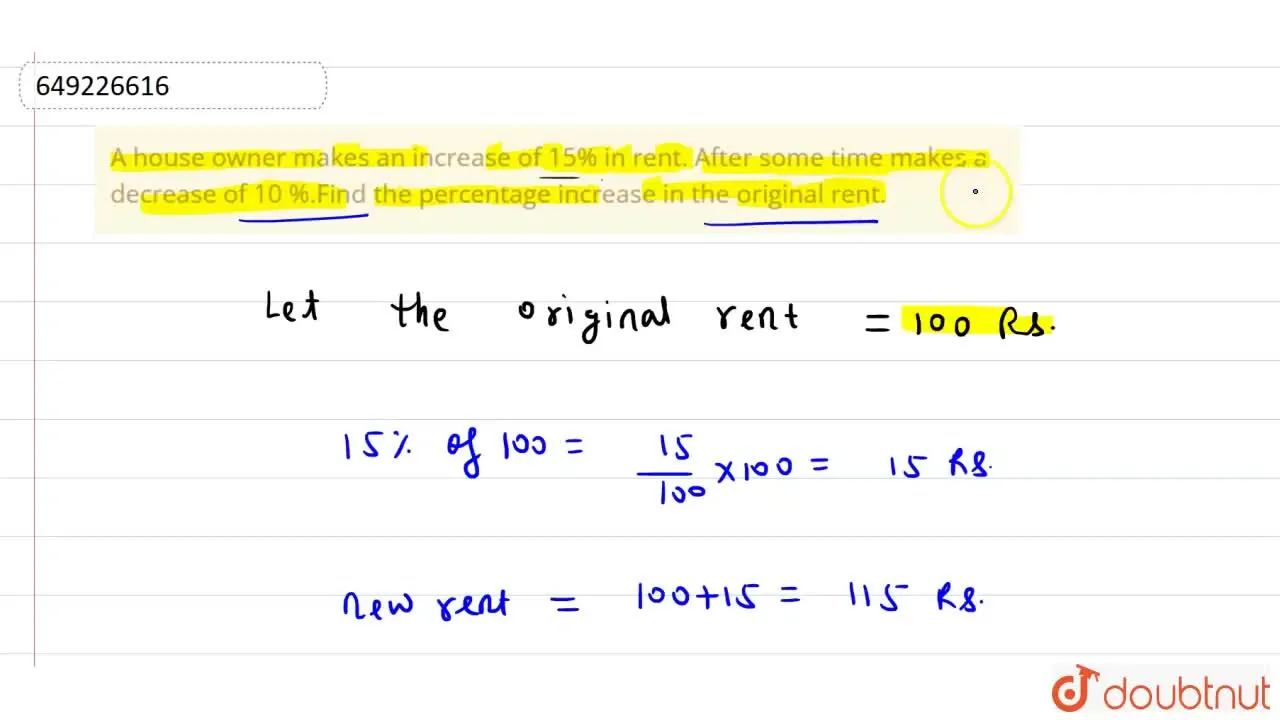 649226616
A house owner makes an increase of 15% in rent. After some time makes a
decrease of 10 %.Find the percentage increase in the original rent.
Let the original rent = 100 Rs.
15% of 100 = 15/100 × 100 = 15 Rs.
new rent = 100+15 = 115 Rs.
doubtnut